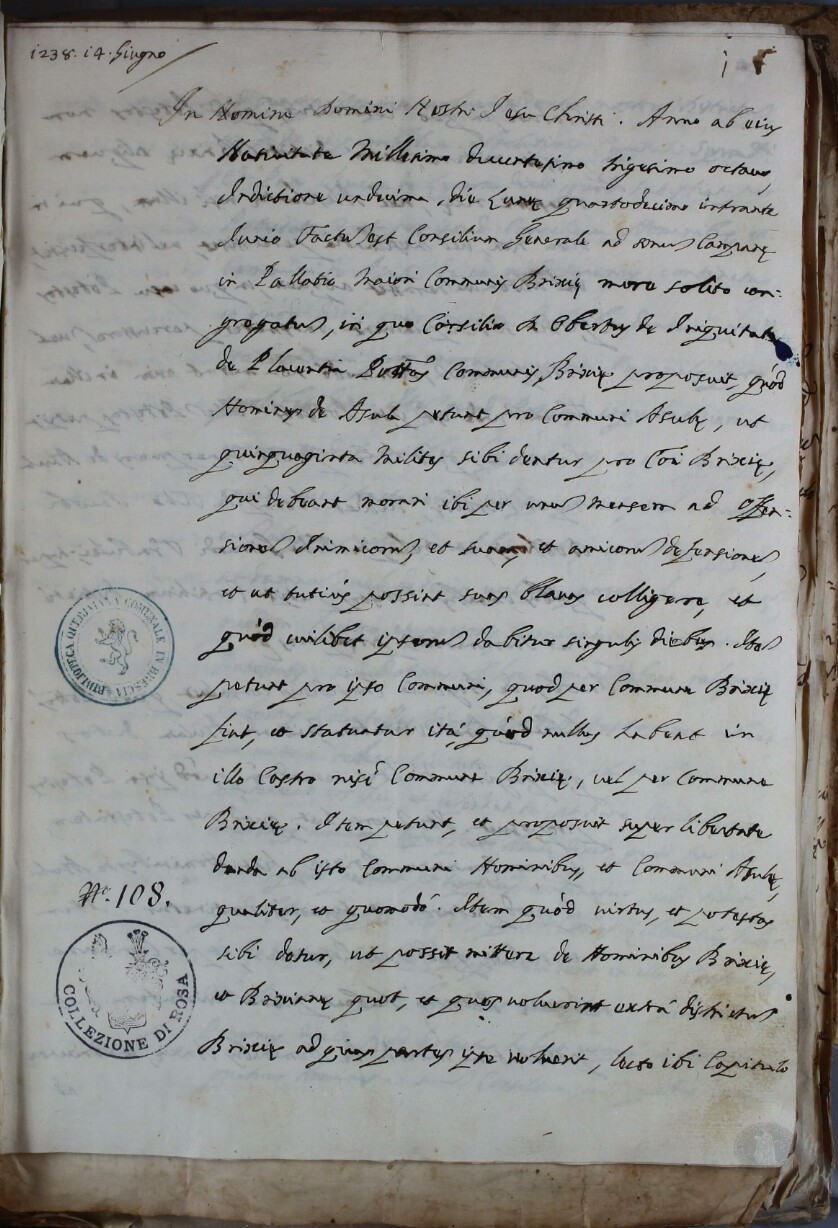 1238. 14. Giugno
1
In Nomine Domini Nostri Jesu Christi. Anno ab eius
Nativitate Millesimo ducentesimo trigesimo octavo,
Indictione undecima, die Lunę quartodecimo intrante
Junio Factus est Consilium Generale ad sonus Campanę
in Pallatio Maiori Communis Brixię more solito con-
gregatus, in quo Consilio D. Obertus de Iniquitate
de Placentia Pottas Communis Brixię proposuit, quód
Homines de Asula petunt pro Communi Asulę, ut
quinquaginta Milites sibi dentur pro Coi Brixię,
qui debeant morari ibi per unus mensem ad offen-
siones Inimicorus, et suam, et amicorus defensiones,
et ut tutiùs possint suas blavas colligere, et
quód cuilibet ipsorus dabitur singulis diebus. Itəs
petunt pro ipso Communi, quod per Commune Brixię
fiat, et statuatur ità, quód nullus habeat in
illo Castro nisi Commune Brixię, vel per Commune
Brixię. Item petunt, et proposuit super libertate
danda ab isto Communi Hominibus, et Communi Asulę,
qualiter, et quomodò. Item quód virtus, et potestas
sibi datur, ut possit mittere de Hominibus Brixię,
et Brixianę quot, et quos voluerint extrà districtus
Brixię ad quas partes ipse voluerit, lecto ibi Capitulo
BIBLIOTECA QUERINIANA COMUNALE IN BRESCIA
No. 108.
COLLEZIONE DI ROSA